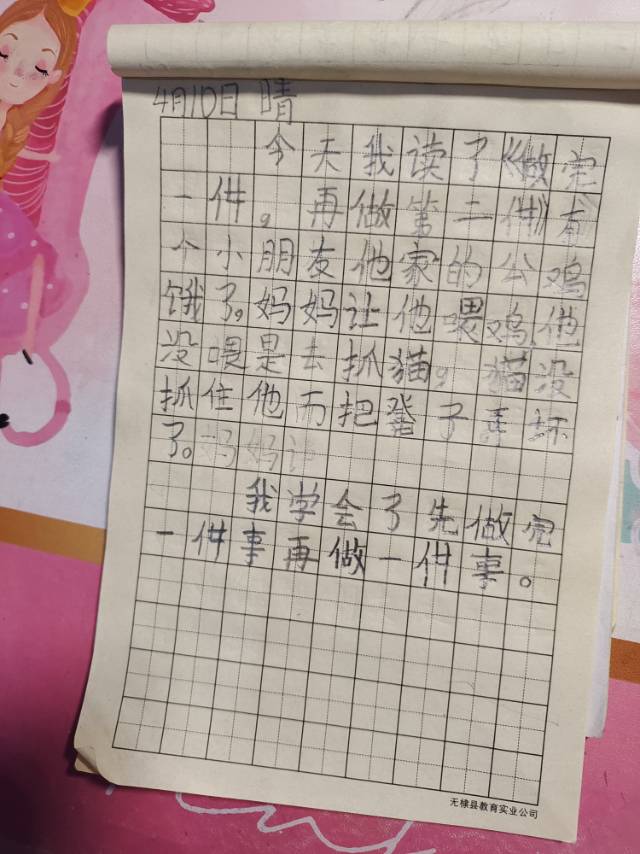 4月10日 晴
今天我读了《做完
一件。再做第二件》有
个小朋友他家的公鸡
饿了。妈妈让他喂鸡,他
没喂是去抓猫,猫没
抓住他而把凳子弄坏
了。妈妈让
我学会了先做完
一件事再做一件事。
无棣县教育实业公司